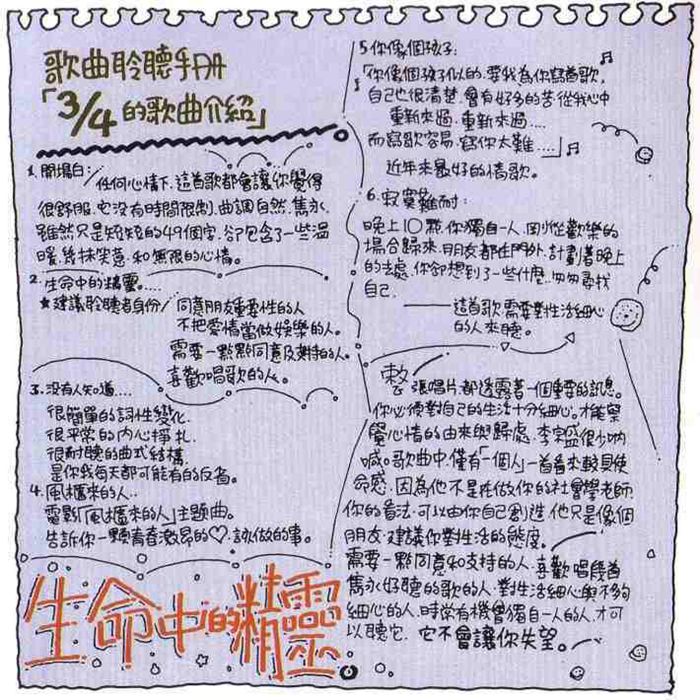 歌曲聆聽手冊
「3/4的歌曲介紹」
1. 開場白:
任何心情下.這首歌都會讓你覺得
很舒服.它沒有時間限制.曲調自然.雋永.
雖然只是短短的49個字.卻包含了一些溫
暖.幾抹笑意.和無限的心情。
2. 生命中的精靈....
★建議聆聽者身份/同意朋友重要性的人
不把愛情當做娛樂的人。
需要一點點同意及支持的人。
喜歡唱歌的人。
3. 沒有人知道....
很簡單的詞性變化.
很平常的內心掙扎.
很耐聽的曲式結構.
是你我每天都可能有的反省。
4. 風櫃來的人..
電影「風櫃來的人」主題曲。
告訴你一顆青春激昂的♡.該做的事。
生命中的精靈
5 你像個孩子:
「你像個孩子似的.要我為你寫首歌.
自己也很清楚.會有好多的苦.從我心中
重新來過.重新來過....
而寫歌容易.寫你太難....」
近年來最好的情歌。
6. 寂寞難耐:
晚上10點.你獨自一人.剛從歡樂的
場合歸來.朋友都在門外.計劃著晚上
的去處.你卻想到了一些什麼.匆匆尋找
自己.
——這首歌.需要對生活細心
的人來聽。
整張唱片.都透露著一個重要的訊息。
你必須對自己的生活十分細心.才能察
覺心情的由來與歸處.李宗盛很少吶
喊。歌曲中.僅有「一個人」一首看來較具使
命感.因為他不是在做你的社會學老師.
你的看法.可以由你自己創造.他只是像個
朋友.建議你對生活的態度。
需要一點同意和支持的人.喜歡唱幾首
雋永好聽的歌的人.對生活細心與不夠
細心的人.時常有機會獨自一人的人.才可
以聽它.它不會讓你失望。